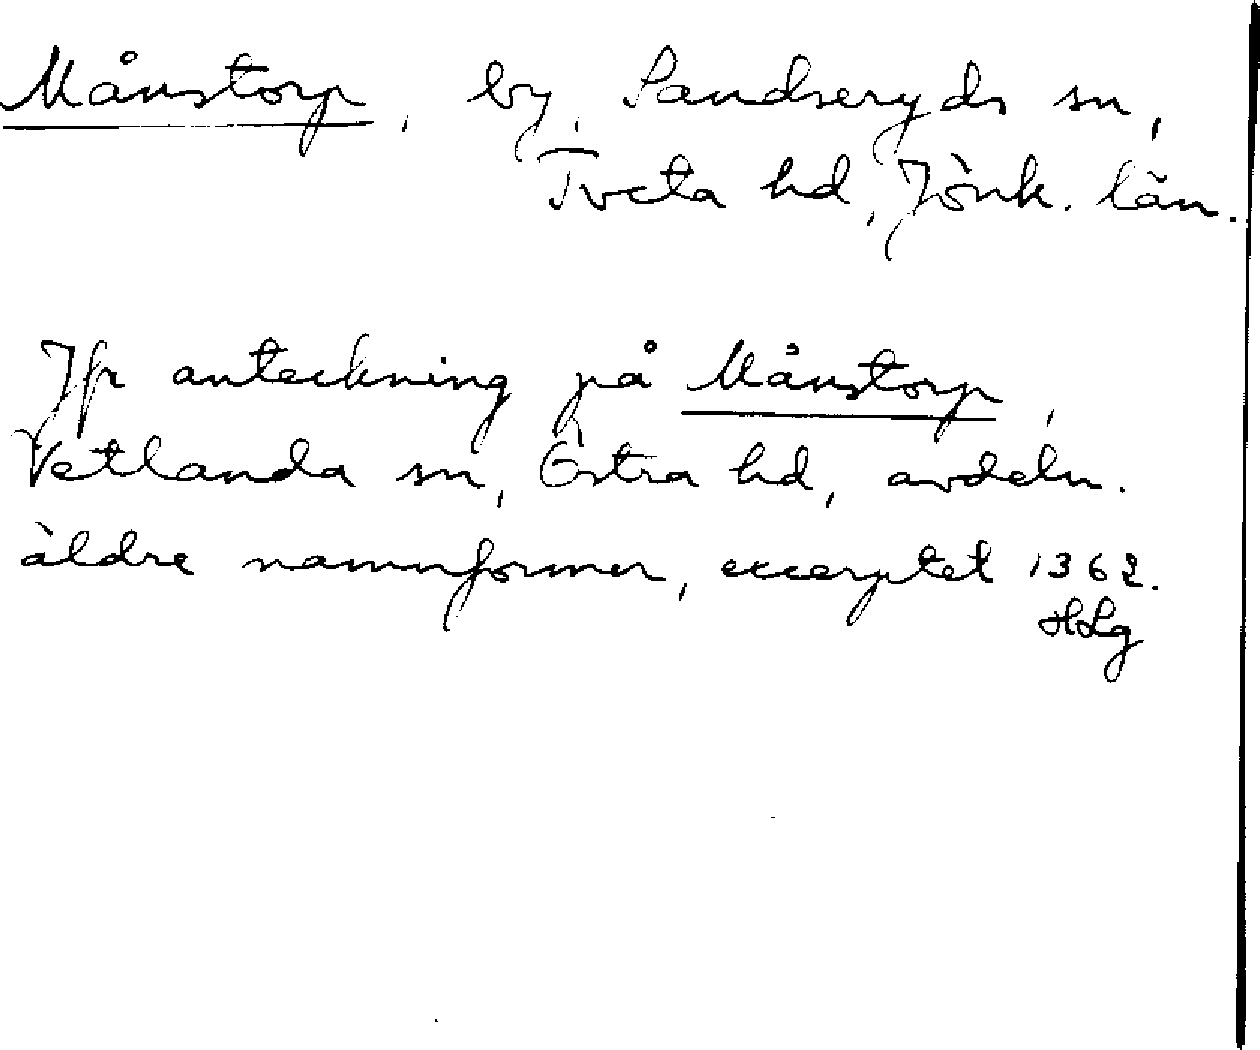 Månstorp, by, Sandseryds sn,
Tveta hd, Jönk. län.
Jfr anteckning på Månstorp,
Vetlanda sn, Östra hd, avdeln.
äldre namnformer, excerptet 1362.
HLg